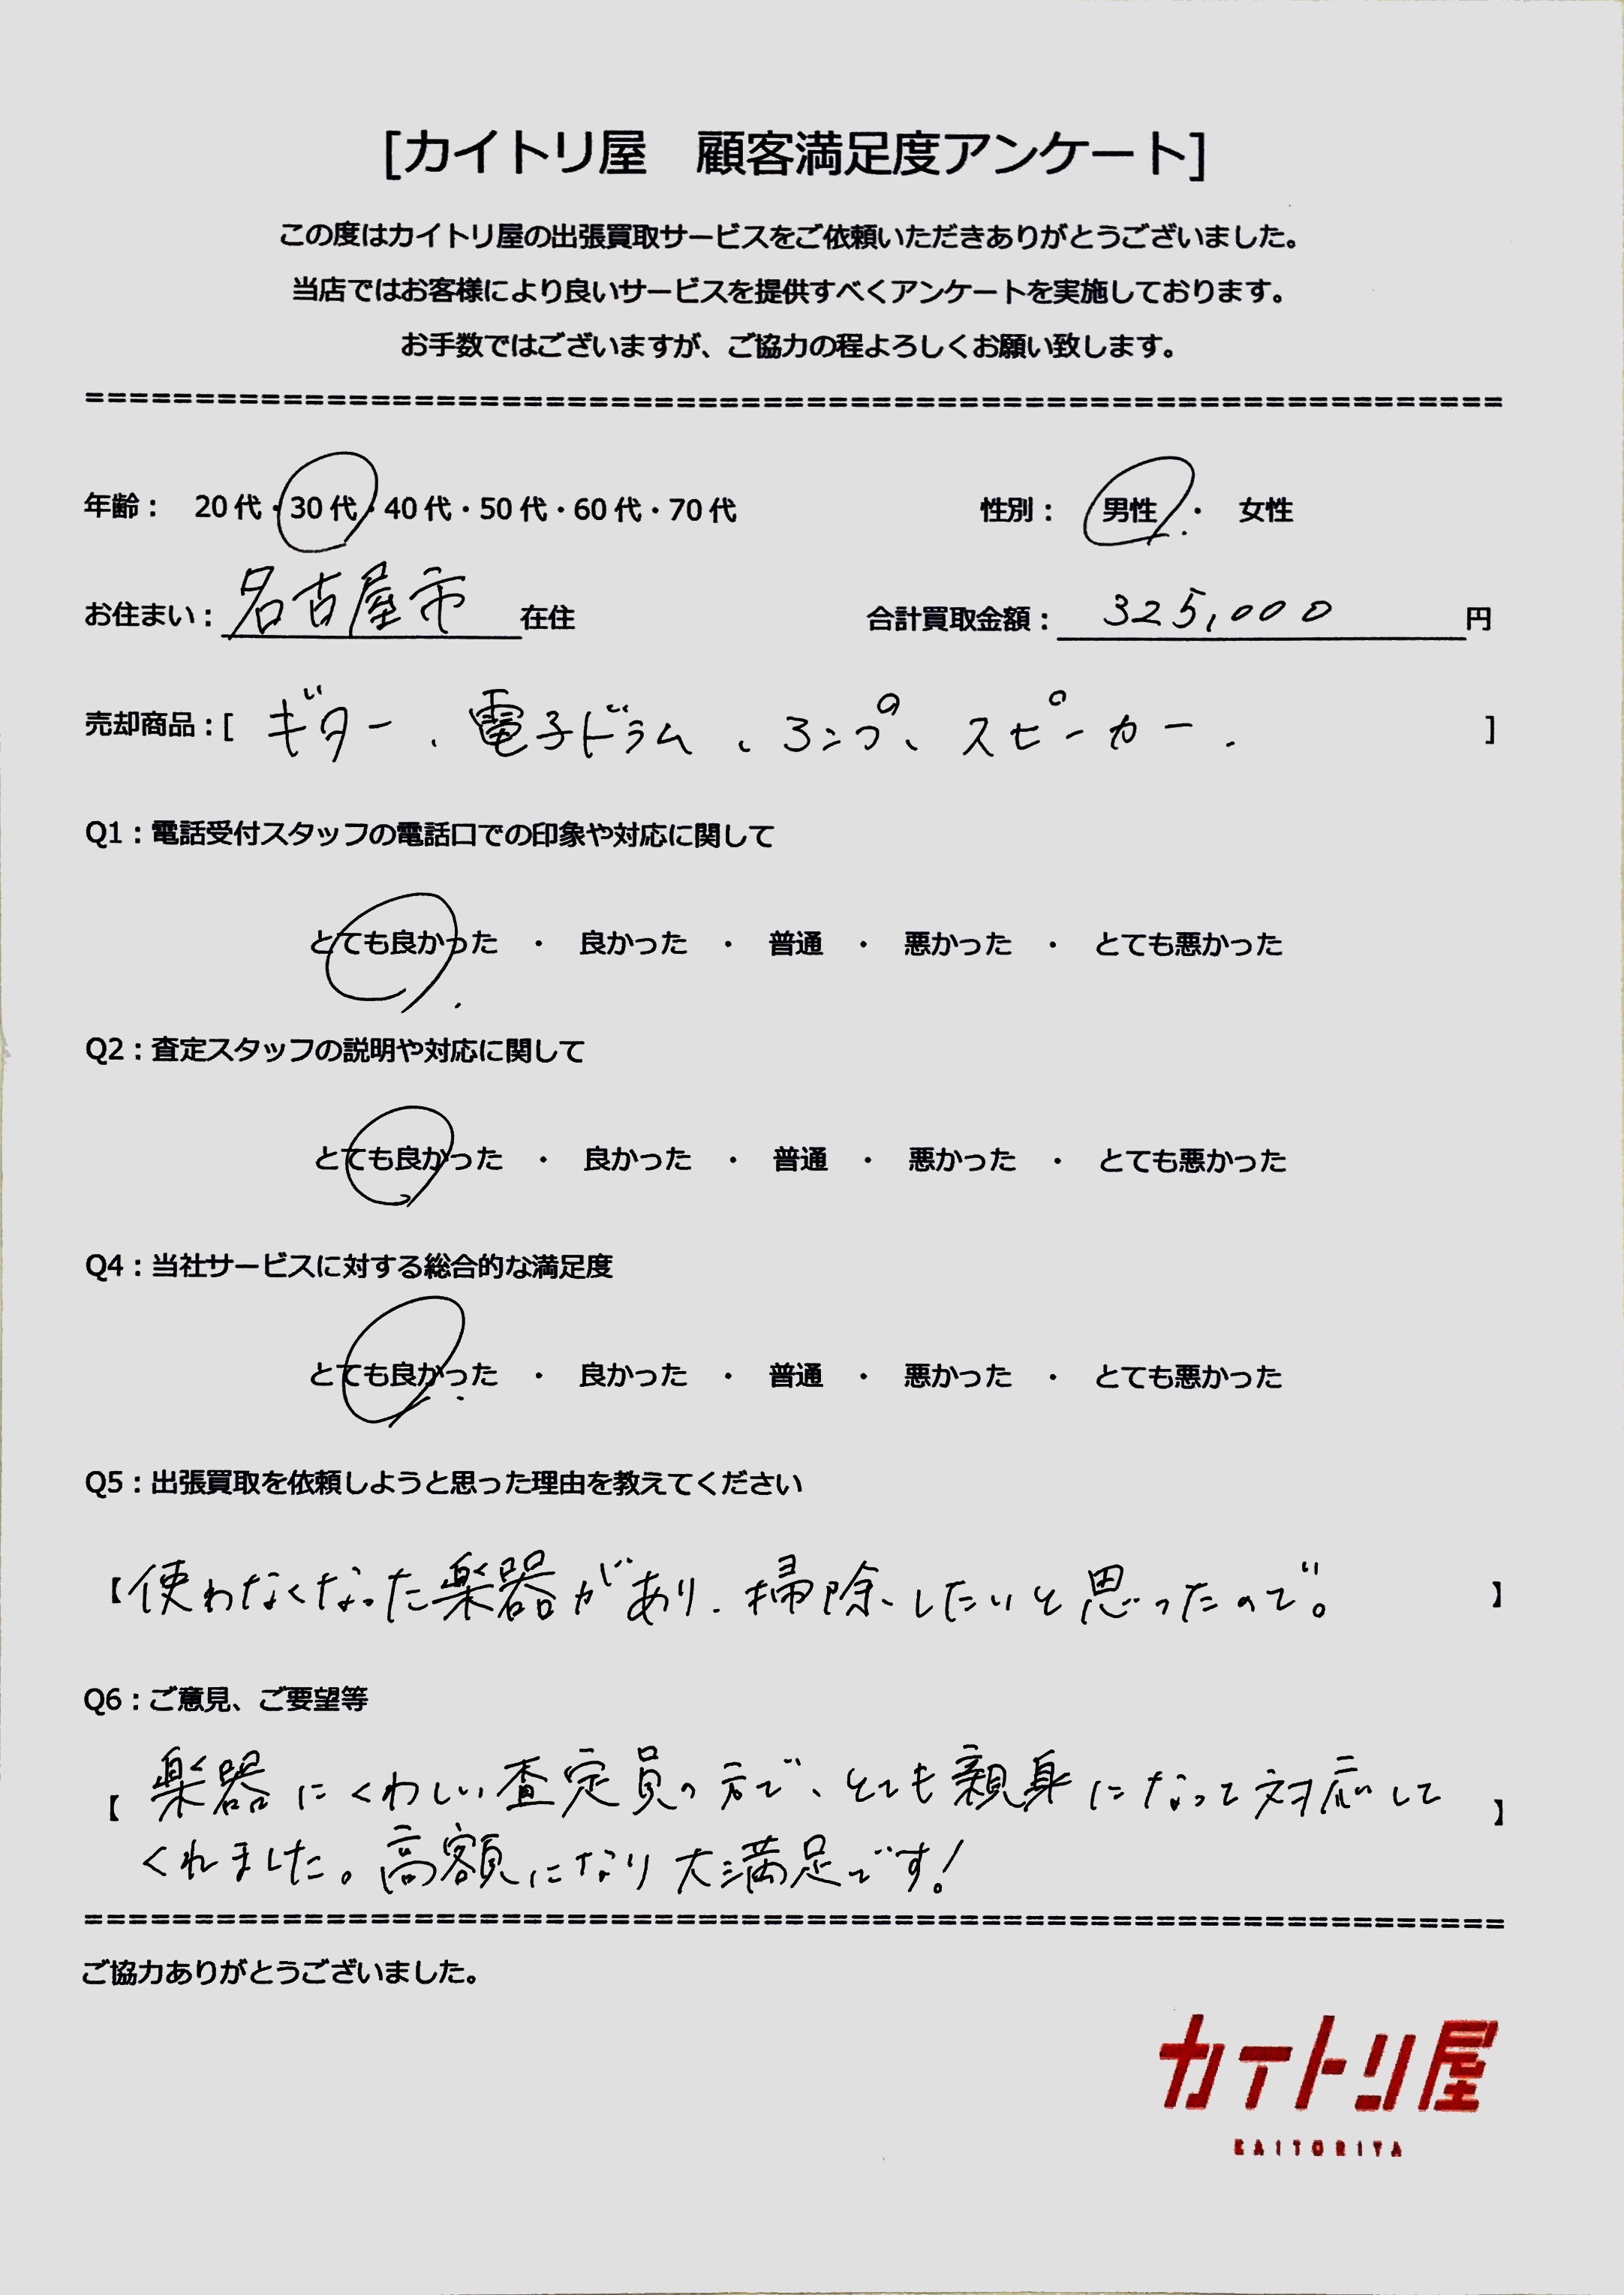 [カイトリ屋　顧客満足度アンケート]
この度はカイトリ屋の出張買取サービスをご依頼いただきありがとうございました。
当店ではお客様により良いサービスを提供すべくアンケートを実施しております。
お手数ではございますが、ご協力の程よろしくお願い致します。
年齢：　20代・30代・40代・50代・60代・70代　性別：　男性　・　女性
お住まい：名古屋市 在住　合計買取金額：325,000円
売却商品：[ ギター、電子ドラム、アンプ、スピーカー. ]
Q1：電話受付スタッフの電話口での印象や対応に関して
とても良かった　・　良かった　・　普通　・　悪かった　・　とても悪かった
Q2：査定スタッフの説明や対応に関して
とても良かった　・　良かった　・　普通　・　悪かった　・　とても悪かった
Q4：当社サービスに対する総合的な満足度
とても良かった　・　良かった　・　普通　・　悪かった　・　とても悪かった
Q5：出張買取を依頼しようと思った理由を教えてください
【使わなくなった楽器があり、掃除したいと思ったので。】
Q6：ご意見、ご要望等
【楽器にくわしい査定員の方で、とても親身になって対応して】
くれました。高額になり大満足です！
ご協力ありがとうございました。
カイトリ屋
KAITORIYA